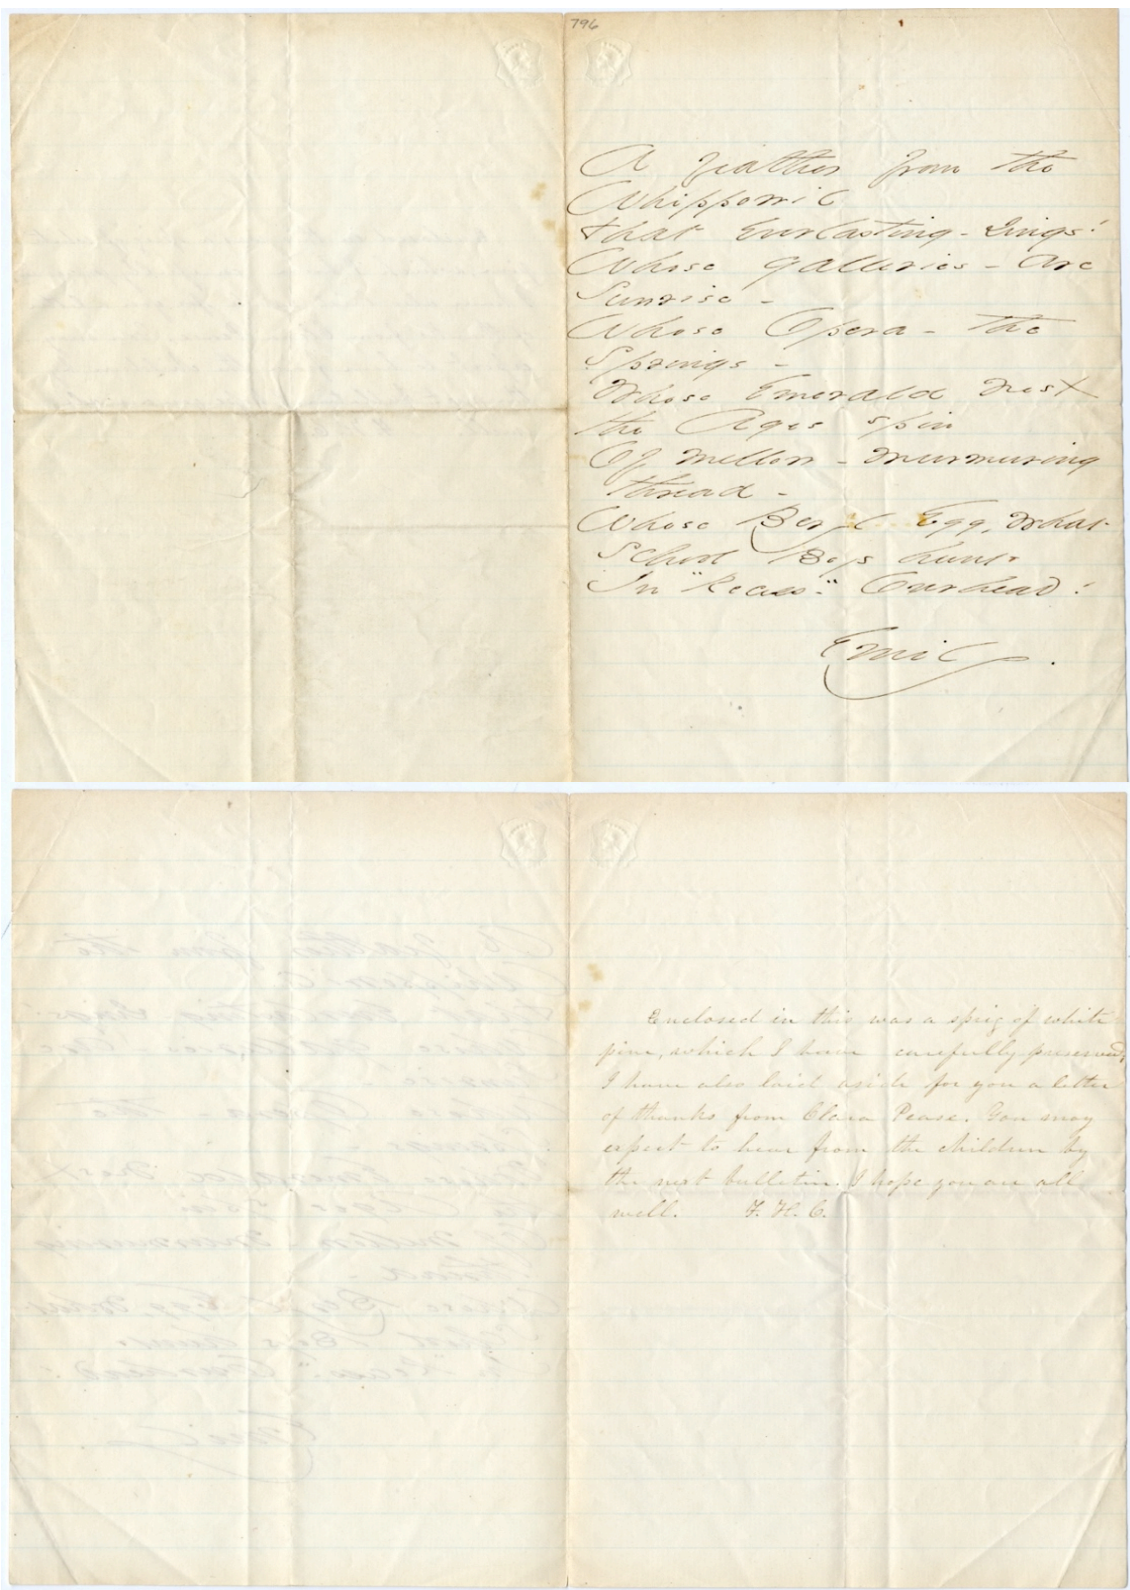 796
A feather from the
Whippowil
that Everlasting - Sings!
Whose galleries - are
Sunrise -
Whose Opera - the
Springs -
Whose Emerald Nest
the Ages spin
Of mellow - murmuring
thread -
Whose Beryl Egg, what
School Boys hunt
In "Recess". Overhead!
Emily.
Enclosed in this was a sprig of white
pine, which I have carefully preserved.
I have also laid aside for you a letter
of thanks from Clara Pease. You may
expect to hear from the children by
the next bulletin. I hope you are all
well. F. H. C.